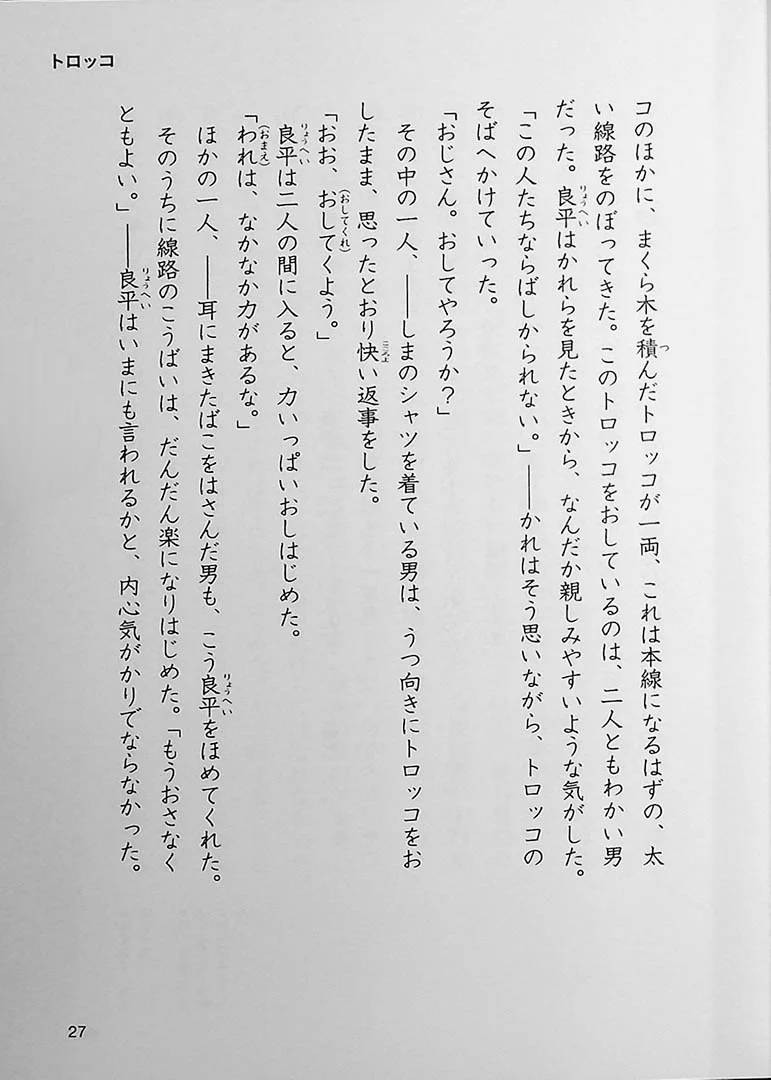 トロッコ
コのほかに、まくら木を積んだトロッコが一両、これは本線になるはずの、太
い線路をのぼってきた。このトロッコをおしているのは、二人ともわかい男
だった。良平はかれらを見たときから、なんだか親しみやすいような気がした。
「この人たちならばしかられない。」――かれはそう思いながら、トロッコの
そばへかけていった。
「おじさん。おしてやろうか?」
その中の一人、――しまのシャツを着ている男は、うつ向きにトロッコをお
したまま、思ったとおり快い返事をした。
「おお、おしてくよう。」
良平は二人の間に入ると、力いっぱいおしはじめた。
「われは、なかなか力があるな。」
ほかの一人、――耳にまきたばこをはさんだ男も、こう良平をほめてくれた。
そのうちに線路のこうばいは、だんだん楽になりはじめた。「もうおさなく
ともよい。」――良平はいまにも言われるかと、内心気がかりでならなかった。
27